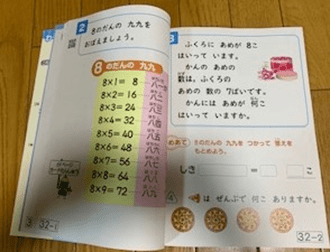 2
8のだんの 九九を
おぼえましょう。
8のだんの 九九
8×1= 8
8×2=16
8×3=24
8×4=32
8×5=40
8×6=48
8×7=56
8×8=64
8×9=72
八一
八二
八三
八四
八五
八六
八七
八八
八九
3
32-1
3
ふくろに あめが 8こ
はいって います。
かんの あめの
数は、ふくろの
あめの 数の 7ばいです。
かんには あめが 何こ
はいって いますか。
めあて
8のだんの 九九を つかって 答えを
もとめよう。
しき
は ぜんぶで 何こ ありますか。
32-2